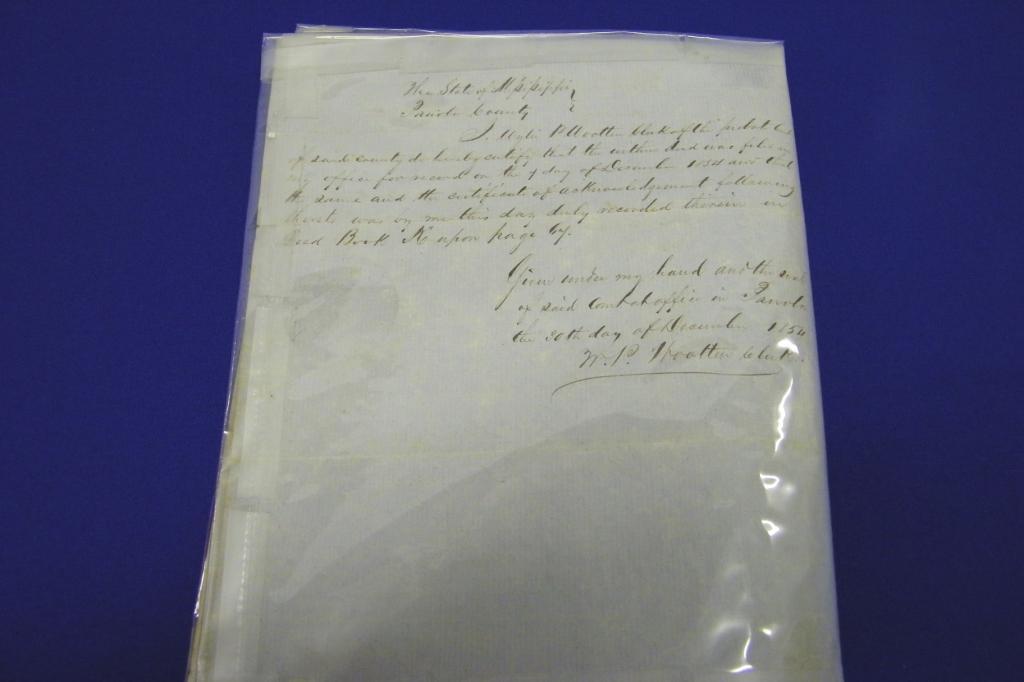 The State of Mississippi
Panola County
I, Wylie P Wootten Clerk of the probat
of said county do hereby certify that the within deed was filed in
my office for record on the 9 day of December 1854 and that
the same and the certificate of acknowledgement following
thereto was by me this day duly recorded therein in
Deed Book K upon page 67.
Given under my hand and the seal
of said Court at office in Panola
the 30th day of December 1854
W. P. Wootten Clerk